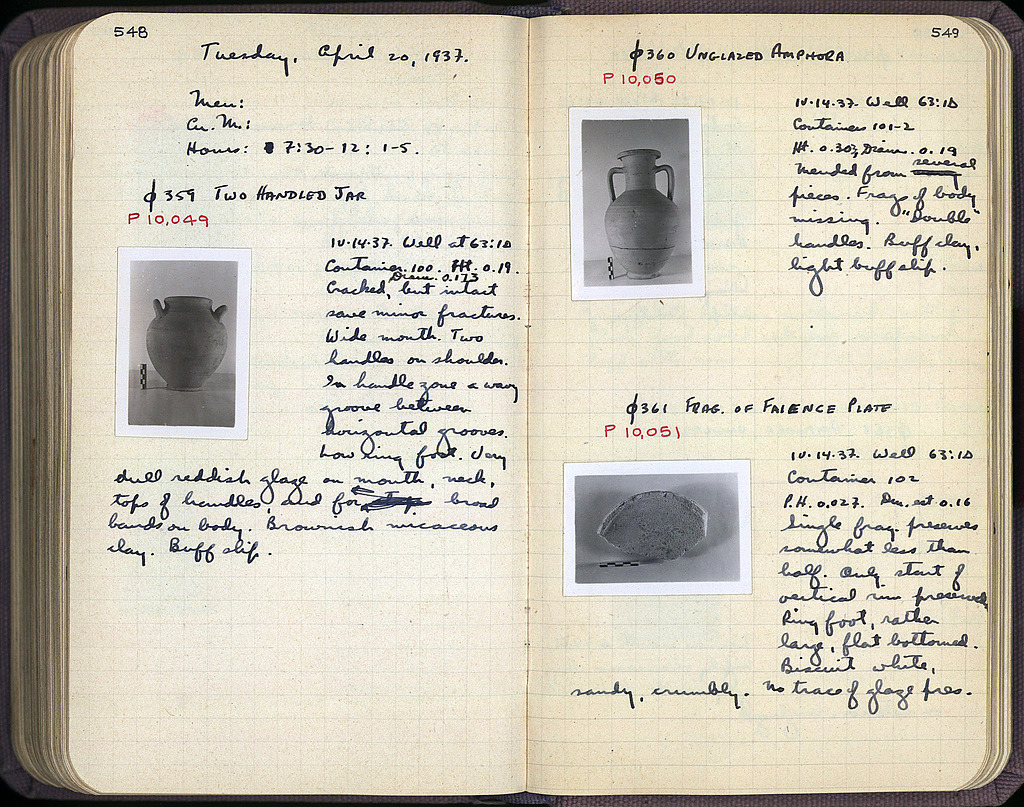 548
Tuesday, April 20, 1937.
Men:
Cu. M.:
Hours: 7:30-12: 1-5.
ϕ359 TWO HANDLED JAR
P 10,049
IV-14-37. Well at 63:ΙΔ
Container 100. Ht. 0.19.
Diam. 0.173
Cracked, but intact
save minor fractures.
Wide mouth. Two
handles on shoulder.
In handle zone a wavy
groove between
horizontal grooves.
Low ring foot. Very
dull reddish glaze on mouth, neck,
tops of handles, and for broad
bands on body. Brownish micaceous
clay. Buff slip.
549
ϕ360 UNGLAZED AMPHORA
P 10,050
IV-14-37. Well 63:ΙΔ
Containers 101-2
Ht. 0.303, Diam. 0.19
Mended from several
pieces. Frags of body
missing. "Double"
handles. Buff clay,
light buff slip.
ϕ361 FRAG. OF FAIENCE PLATE
P 10,051
IV-14-37. Well 63:ΙΔ
Container 102
P.H. 0.027. Dm. est. 0.16
Single frag. preserves
somewhat less than
half. Only start of
vertical rim preserved.
Ring foot, rather
large, flat bottomed.
Biscuit white,
sandy, crumbly. No trace of glaze pres.